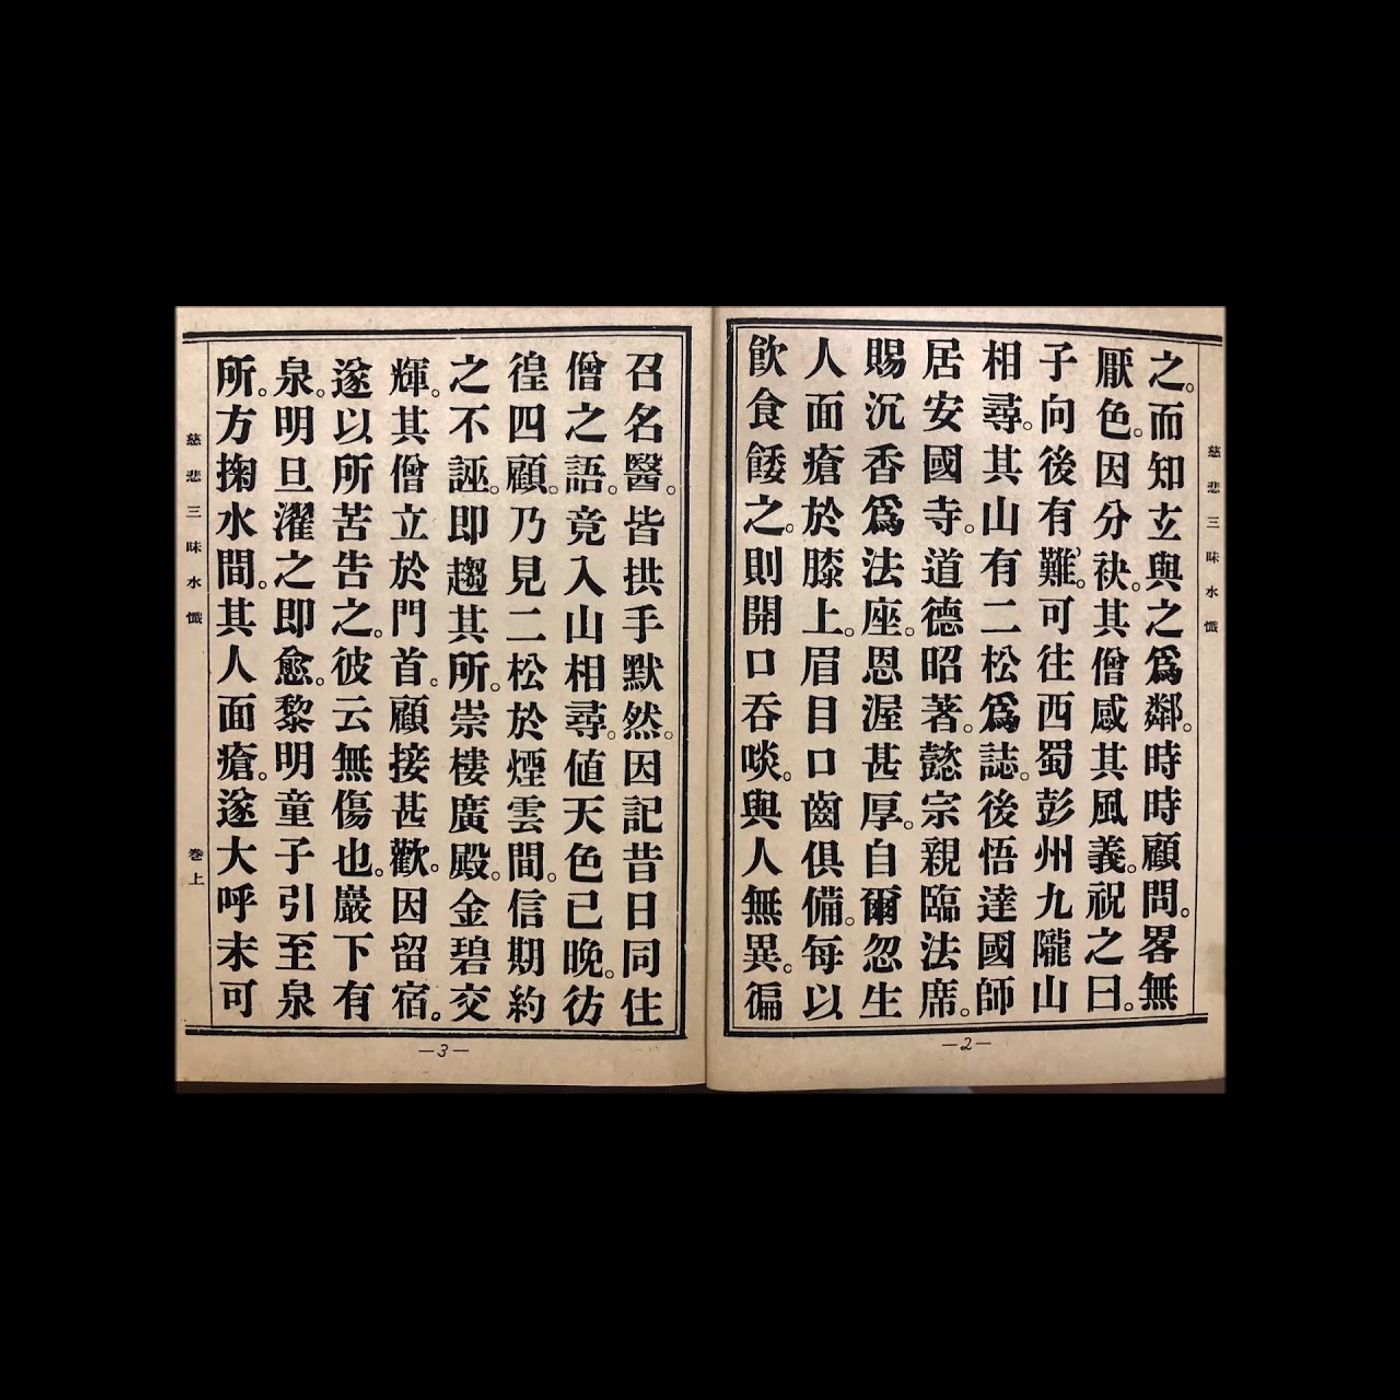 慈悲三昧水懺
之。而知玄與之爲鄰。時時顧問。畧無
厭色。因分袂。其僧感其風義。祝之曰。
子向後有難。可往西蜀彭州九隴山
相尋。其山有二松爲誌。後悟達國師
居安國寺。道德昭著。懿宗親臨法席。
賜沉香爲法座。恩渥甚厚。自爾忽生
人面瘡於膝上。眉目口齒俱備。每以
飲食餧之。則開口吞啖。與人無異。徧
—2—
召名醫。皆拱手默然。因記昔日同住
僧之語。竟入山相尋。値天色已晚。彷
徨四顧。乃見二松於煙雲間。信期約
之不誣。即趨其所。崇樓廣殿。金碧交
輝。其僧立於門首。顧接甚歡。因留宿。
遂以所苦告之。彼云無傷也。巖下有
泉。明旦濯之即愈。黎明童子引至泉
所。方掬水間。其人面瘡。遂大呼未可
慈悲三昧水懺 卷上
—3—